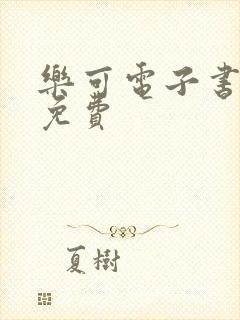 樂可電子書
免費
夏樹